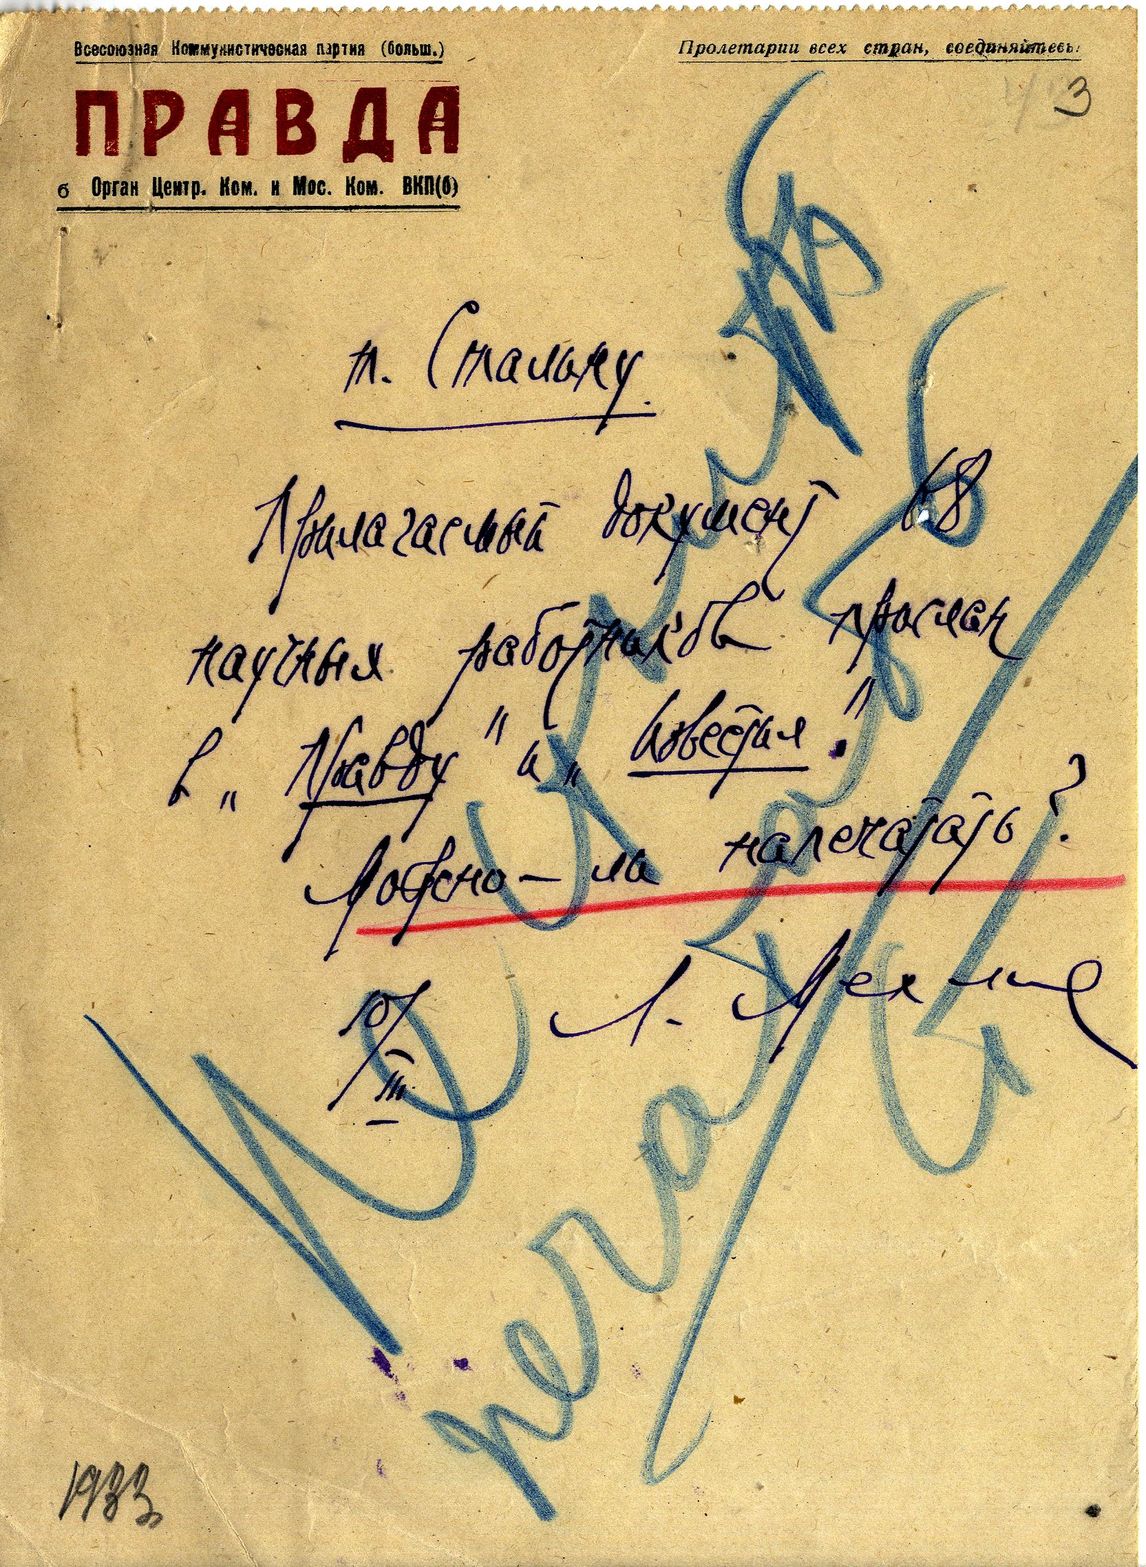 Всесоюзная Коммунистическая партия (больш.)
Пролетарии всех стран, соединяйтесь!
3
ПРАВДА
б Орган Центр. Ком. и Мос. Ком. ВКП(б)
т. Сталину.
Прилагаемый документ 68
научных работников прислан
в „Правду" и „Известия".
Можно-ли напечатать?
Л. Мехлис
10/III
печатать
1933